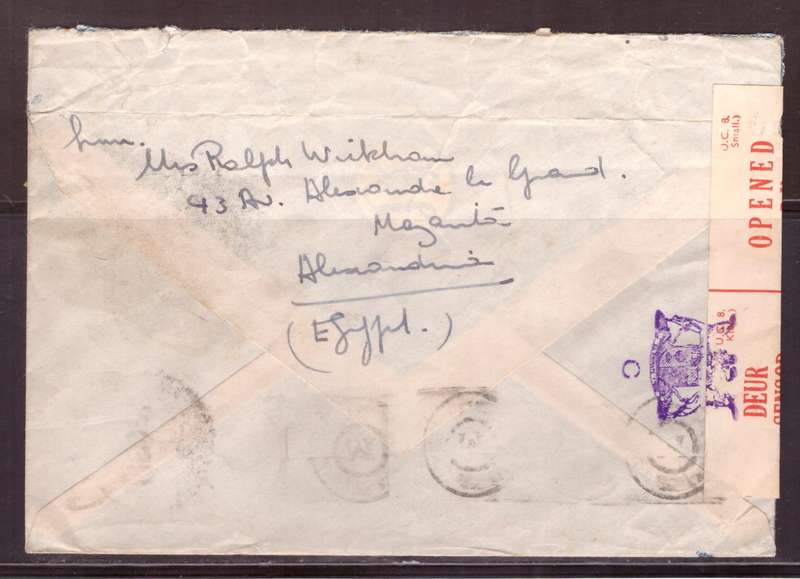 from.
Mrs Ralph Wickham
43 Av. Alexandre le Grand.
Mazarita
Alexandria
(Egypt.)
U.C. B.
Small.)
OPENED
U.C. B.
Kl
DEUR
SENSOR
C